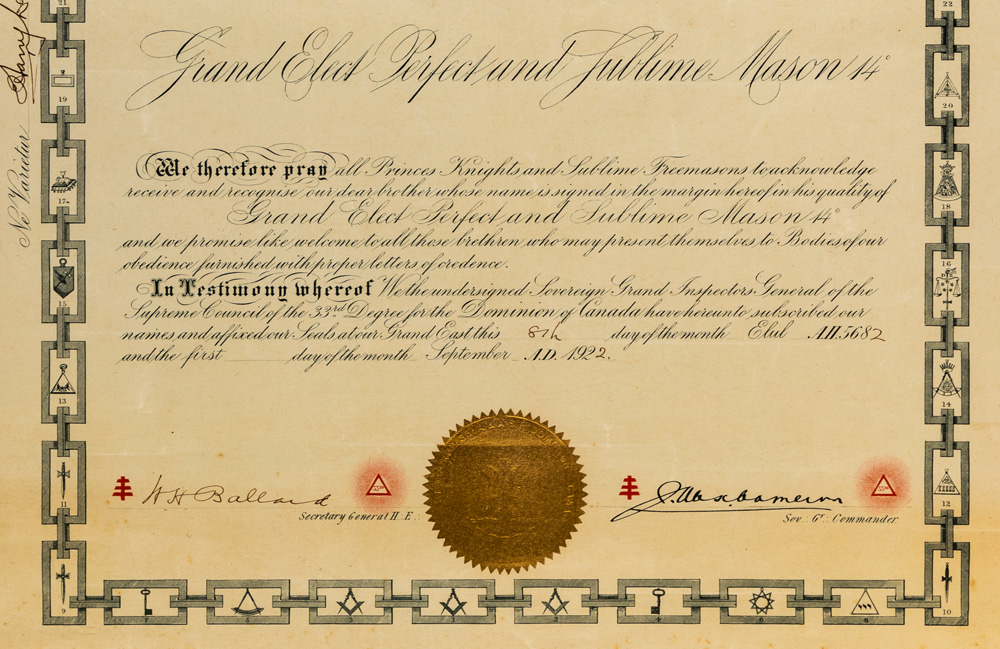 Grand Elect Perfect and Sublime Mason 14°
We therefore pray all Princes Knights and Sublime Freemasons to acknowledge
receive and recognise our dear brother whose name is signed in the margin hereof in his quality of
Grand Elect Perfect and Sublime Mason 14°
and we promise like welcome to all those brethren who may present themselves to Bodies of our
obedience furnished with proper letters of credence.
In Testimony whereof We the undersigned Sovereign Grand Inspectors General of the
Supreme Council of the 33rd Degree for the Dominion of Canada have hereunto subscribed our
names and affixed our Seals at our Grand East this 8th day of the month Elul A.H. 5682
and the first day of the month September A.D. 1922.
W H Ballard
Secretary General H. E.
Sov. Gr. Commander
Ne Varietur
21
19
17
15
13
11
9
22
20
18
16
14
12
10
7
5
3
1
2
4
6
8